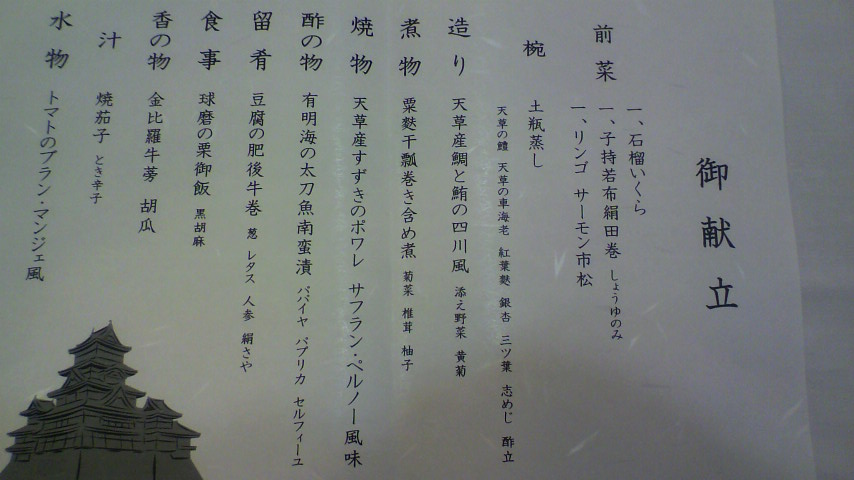 御献立
前菜
一、石榴いくら
一、子持若布絹田巻 しょうゆのみ
一、リンゴ サーモン市松
椀 土瓶蒸し
天草の鱧 天草の車海老 紅葉麩 銀杏 三ツ葉 志めじ 酢立
造り 天草産鯛と鮪の四川風 添え野菜 黄菊
煮物 粟麩干瓢巻き含め煮 菊菜 椎茸 柚子
焼物 天草産すずきのポワレ サフラン・ペルノー風味
酢の物 有明海の太刀魚南蛮漬 パパイヤ パプリカ セルフィーユ
留肴 豆腐の肥後牛巻 葱 レタス 人参 絹さや
食事 球磨の栗御飯 黒胡麻
香の物 金比羅牛蒡 胡瓜
汁 焼茄子 とき辛子
水物 トマトのブラン・マンジェ風